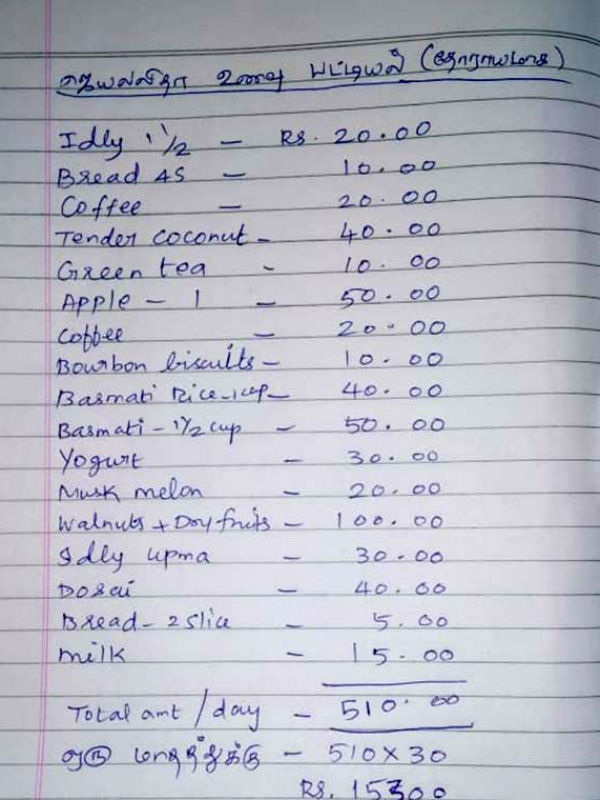 ஜெயலலிதா உணவு பட்டியல் (தோராயமாக)
Idly 1 1/2 – Rs. 20.00
Bread 4S – 10.00
Coffee – 20.00
Tender coconut – 40.00
Green tea - 10.00
Apple – 1 – 50.00
Coffee – 20.00
Bourbon biscuits – 10.00
Basmati Rice-1cup – 40.00
Basmati – 1 1/2 cup – 50.00
Yogurt – 30.00
Musk melon – 20.00
Walnuts + Dry fruits – 100.00
Idly upma – 30.00
Dosai – 40.00
Bread – 2 slice – 5.00
milk – 15.00
Total amt / day – 510.00
ஒரு மாதத்துக்கு – 510 X 30
Rs. 15300